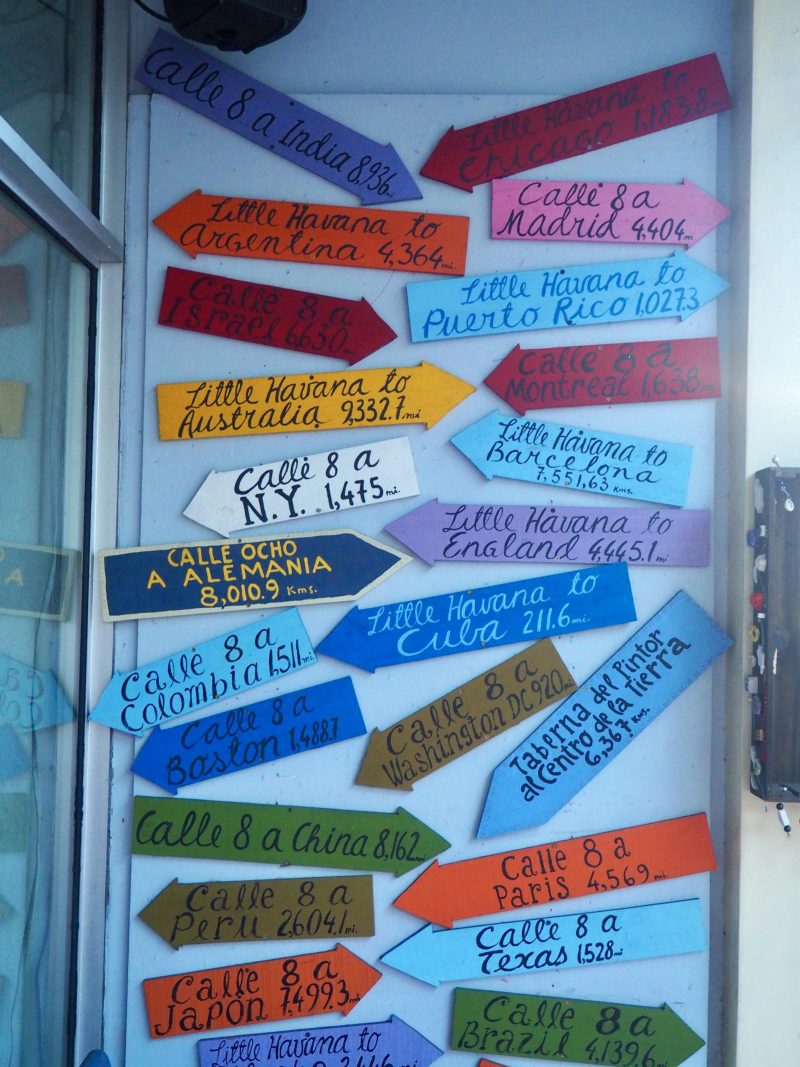 Calle 8 a India 8,936 mi
Little Havana to
Chicago 1,183.8 mi
Calle 8 a
Madrid 4,404 mi
Little Havana to
Argentina 4,364 mi
Little Havana to
Puerto Rico 1,027.3
Calle 8 a
Israel 6630 mi
Calle 8 a
Montreal 1,638 mi
Little Havana to
Australia 9,332.7 mi
Little Havana to
Barcelona
7,551,63 Kms.
Calle 8 a
N.Y. 1,475 mi.
Little Havana to
England 4,445.1 mi
CALLE OCHO
A ALEMANIA
8,010.9 Kms.
Little Havana to
Cuba 211.6 mi.
Calle 8 a
Colombia 1,511 mi
Calle 8 a
Washington DC 920 mi
Taberna del Pintor
al Centro de la Tierra
6,367 Kms.
Calle 8 a
Boston 1,488.7
Calle 8 a China 8,162 mi
Calle 8 a
Paris 4,569 mi
Calle 8 a
Peru 2,604.1 mi.
Calle 8 a
Texas 1,528 mi
Calle 8 a
Japón 7,499.3 mi
Calle 8 a
Brazil 4,139.6 mi
Little Havana to